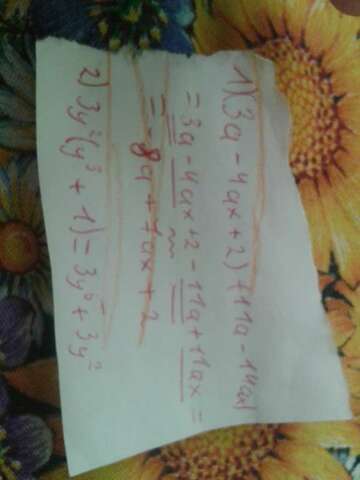 1) (3a - 4ax + 2) + 11a - 14ax
= 3a - 4ax + 2 - 11a + 11ax =
= - 8a + 7ax + 2
2) 3y²(y³ + 1) = 3y⁵ + 3y²